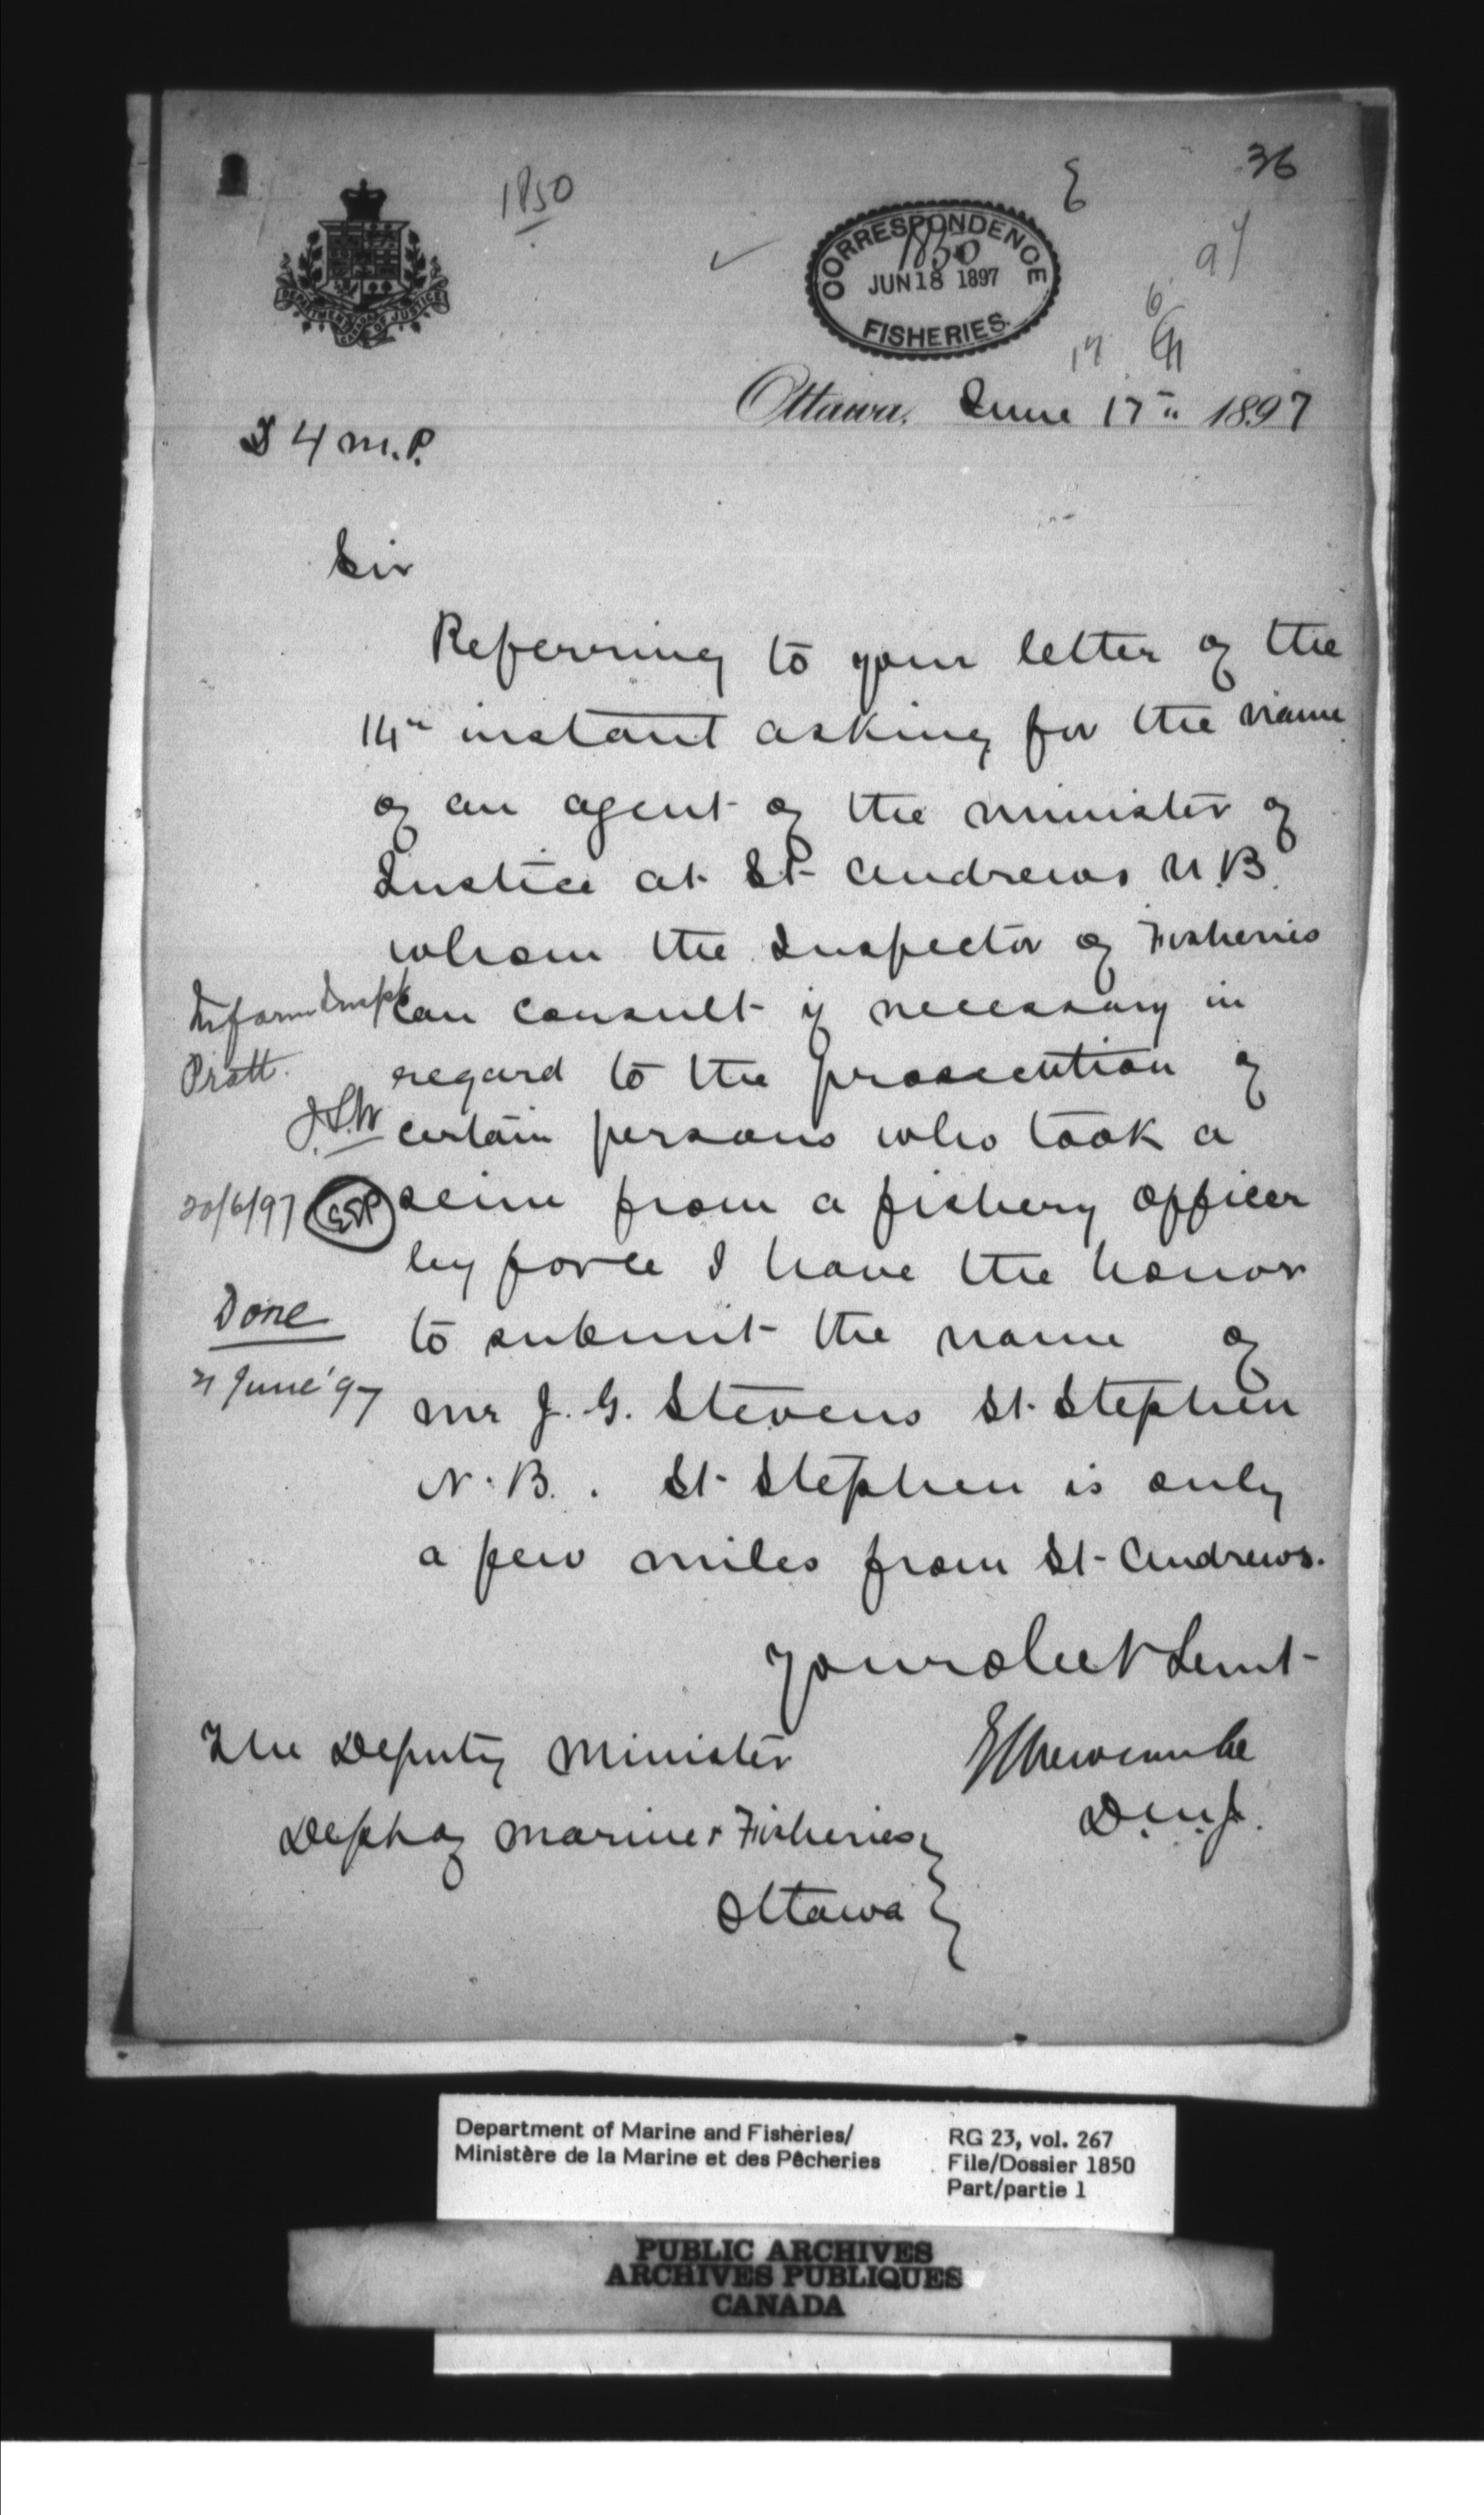 36
1850
CORRESPONDENCE
1850
JUN 18 1897
FISHERIES.
DEPARTMENT OF JUSTICE
CANADA
97
6
17
Ottawa, June 17th 1897
4 M.P.
Sir
Referring to your letter of the
14th instant asking for the name
of an agent of the minister of
Justice at St Andrews N.B.
whom the Inspector of Fisheries
can consult if necessary in
regard to the prosecution of
certain persons who took a
seine from a fishery officer
by force I have the honor
to submit the name of
Mr J. G. Stevens St. Stephen
N.B. . St Stephen is only
a few miles from St-Andrews.
Inform Inspr
Pratt.
20/6/97
Done
21 June '97
Your obedt Servt
The Deputy Minister
Dept of Marine & Fisheries
Ottawa
E L Newcombe
D.M.J.
Department of Marine and Fisheries/
Ministère de la Marine et des Pêcheries
RG 23, vol. 267
File/Dossier 1850
Part/partie 1
PUBLIC ARCHIVES
ARCHIVES PUBLIQUES
CANADA